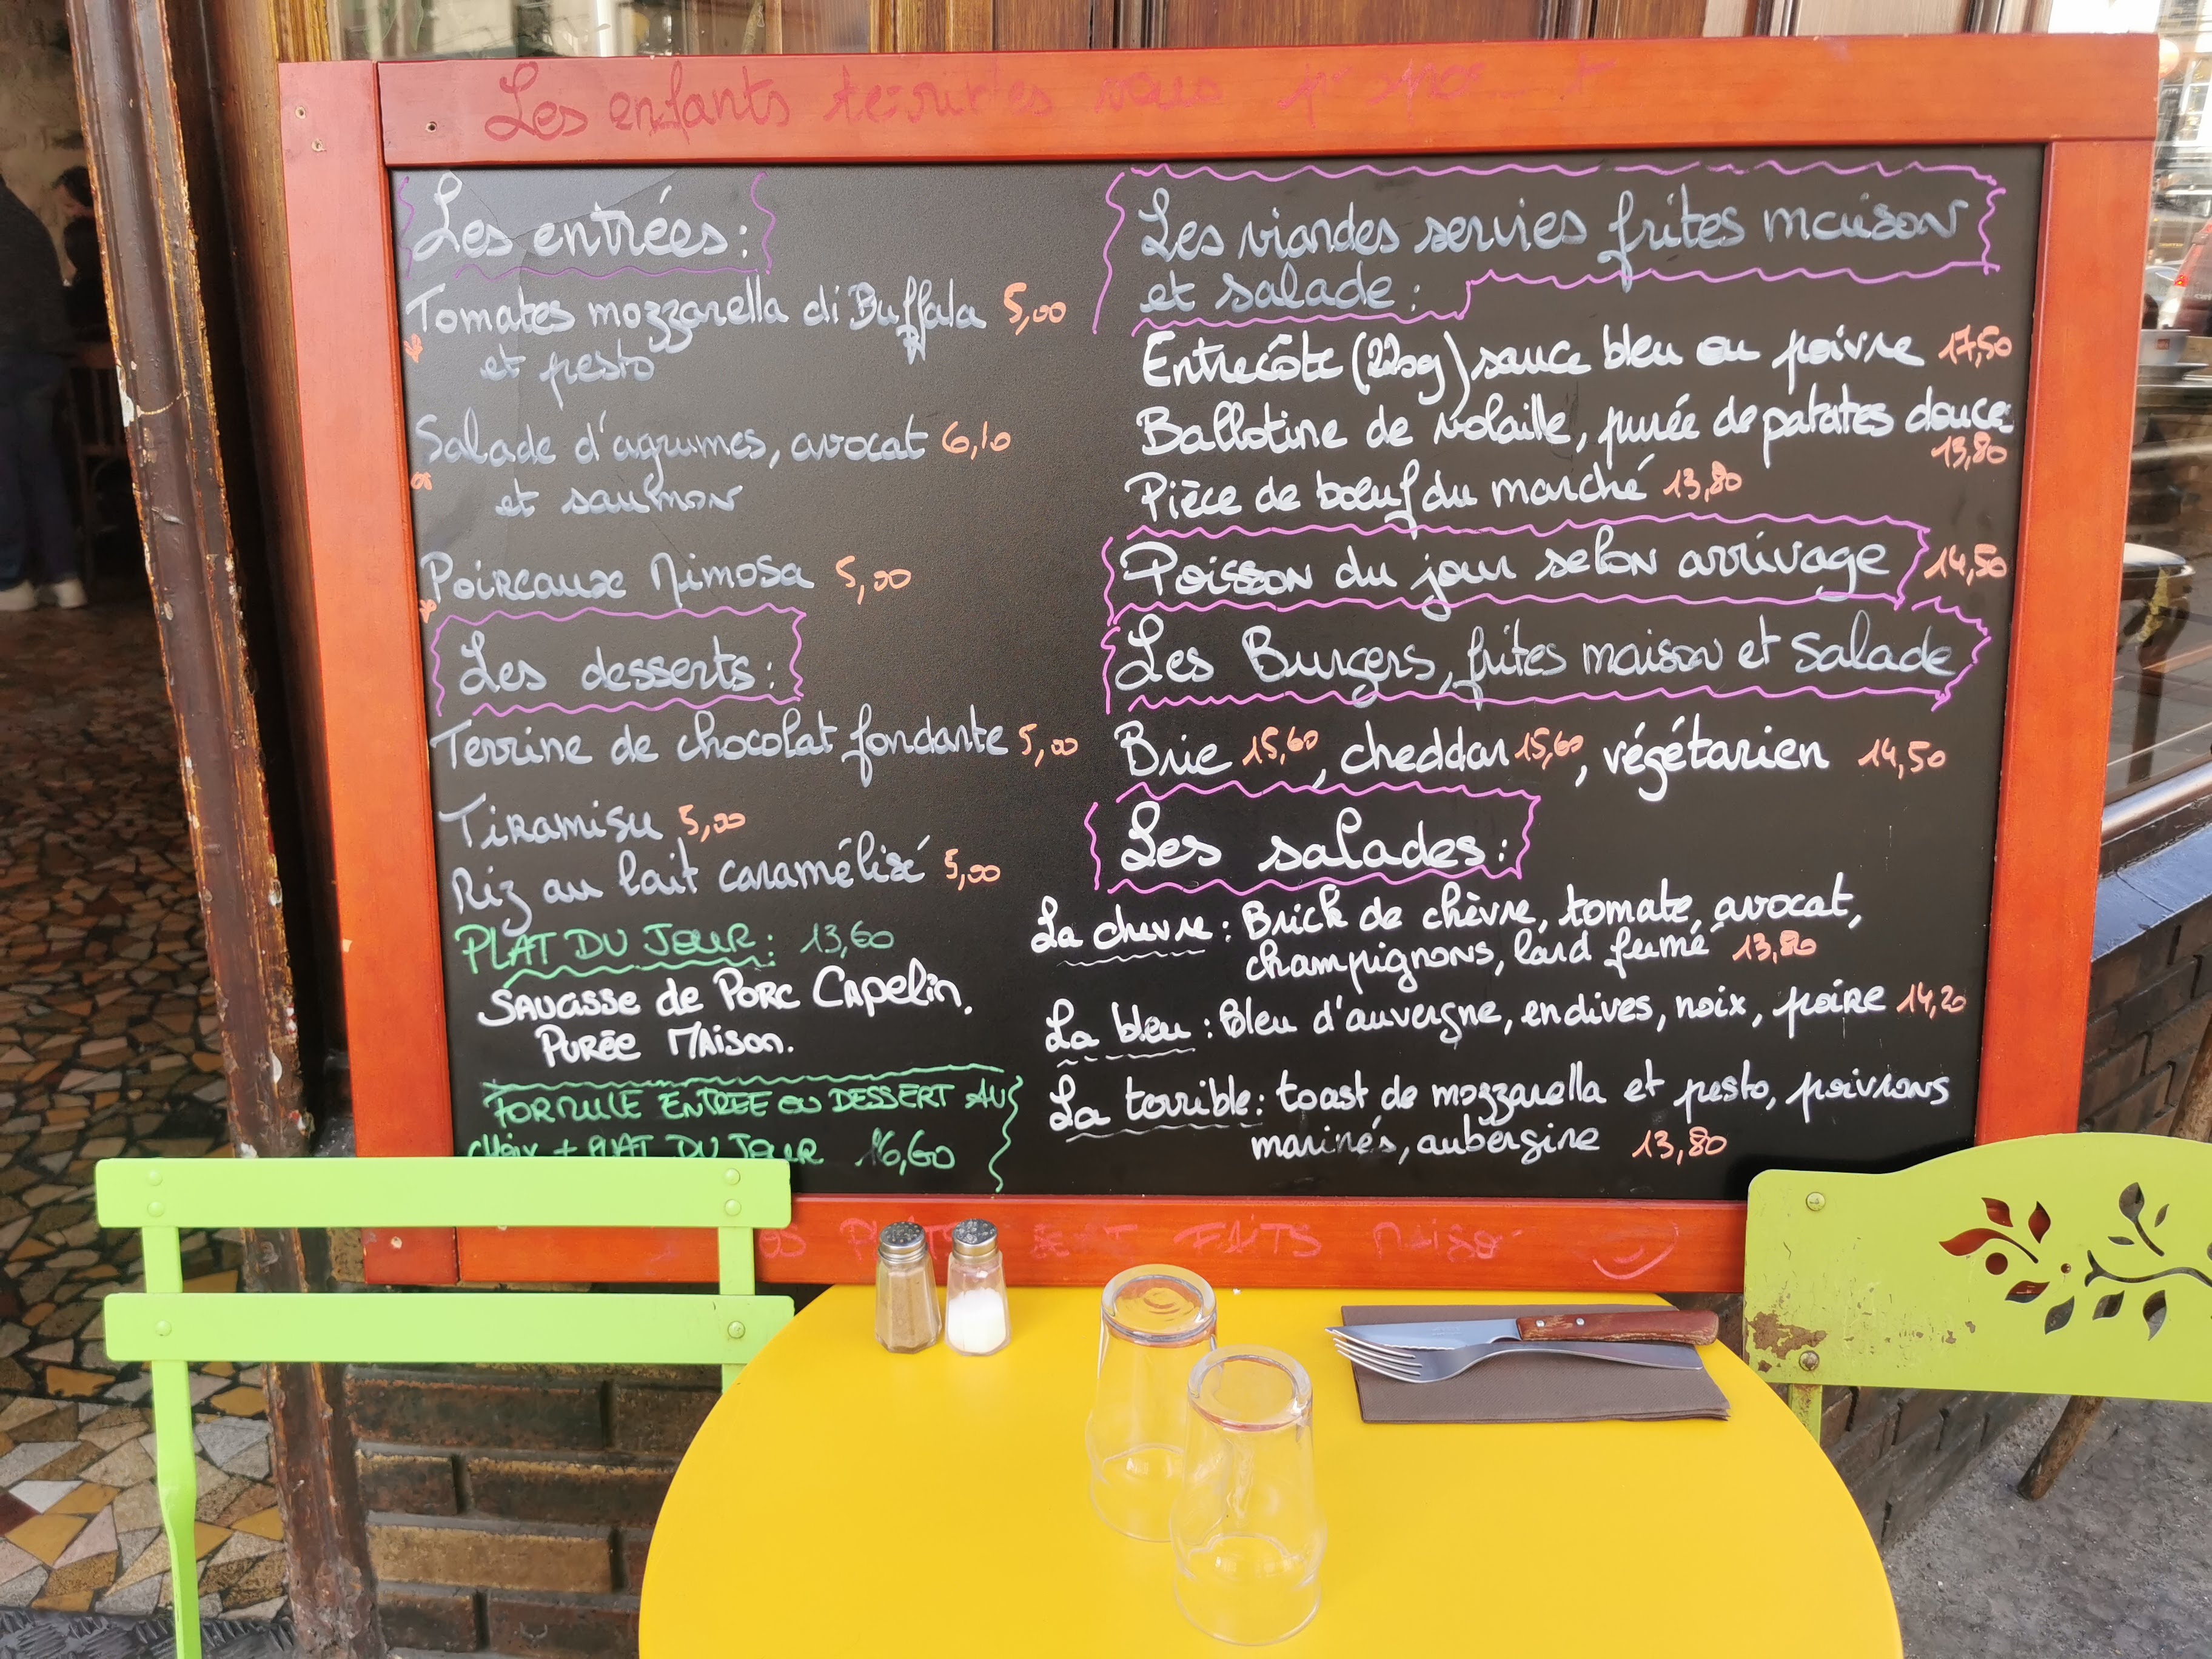 Les enfants
Les entrées:
Tomates mozzarella di Buffala 5,00
et pesto
Salade d'agrumes, avocat 6,10
et saumon
Poireaux Mimosa 5,00
Les desserts:
Terrine de chocolat fondante 5,00
Tiramisu 5,00
Riz au lait caramélisé 5,00
PLAT DU JOUR: 13,60
Saucisse de Porc Capelin.
Purée Maison.
FORMULE ENTREE OU DESSERT AU
choix + PLAT DU JOUR 16,60
Les viandes servies frites maison
et salade:
Entrecôte (220g) sauce bleu ou poivre 17,50
Ballotine de volaille, purée de patates douce
13,80
Pièce de bœuf du marché 13,80
Poisson du jour selon arrivage 14,50
Les Burgers, frites maison et salade
Brie 15,60, cheddar 15,60, végétarien 14,50
Les salades:
La chevre: Brick de chèvre, tomate, avocat,
champignons, lard fumé 13,80
La bleu: Bleu d'auvergne, endives, noix, poire 14,20
La terrible: toast de mozzarella et pesto, poivrons
marinés, aubergine 13,80
FAITS